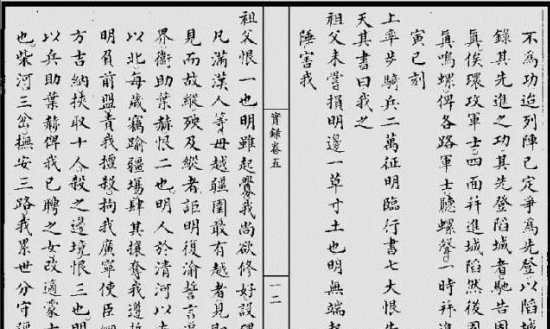 不為功迨列陣已定爭為先登以陷城
錄其先進之功其先登陷城者馳告固
真俟環攻軍士四面并進城陷然後固
真鳴螺俾各路軍士聽螺聲一時并進
寅巳刻
上率步騎兵二萬征明臨行書七大恨告
天其書曰我之
祖父未嘗損明邊一草寸土也明無端起
陲害我
實錄卷五
一二
祖父恨一也明雖起釁我尚欲修好設
凡滿漢人等毋越疆圉敢有越者見
見而故縱殃及縱者詎明復渝誓言
界衛助葉赫恨二也明人於清河以
以北每歲竊踰疆場肆其攘奪我遵
明負前盟責我擅殺拘我廣寧使臣
方吉納挾取十人殺之邊境恨三也明
以兵助葉赫俾我已聘之女改適蒙
也柴河三岔撫安三路我累世分守